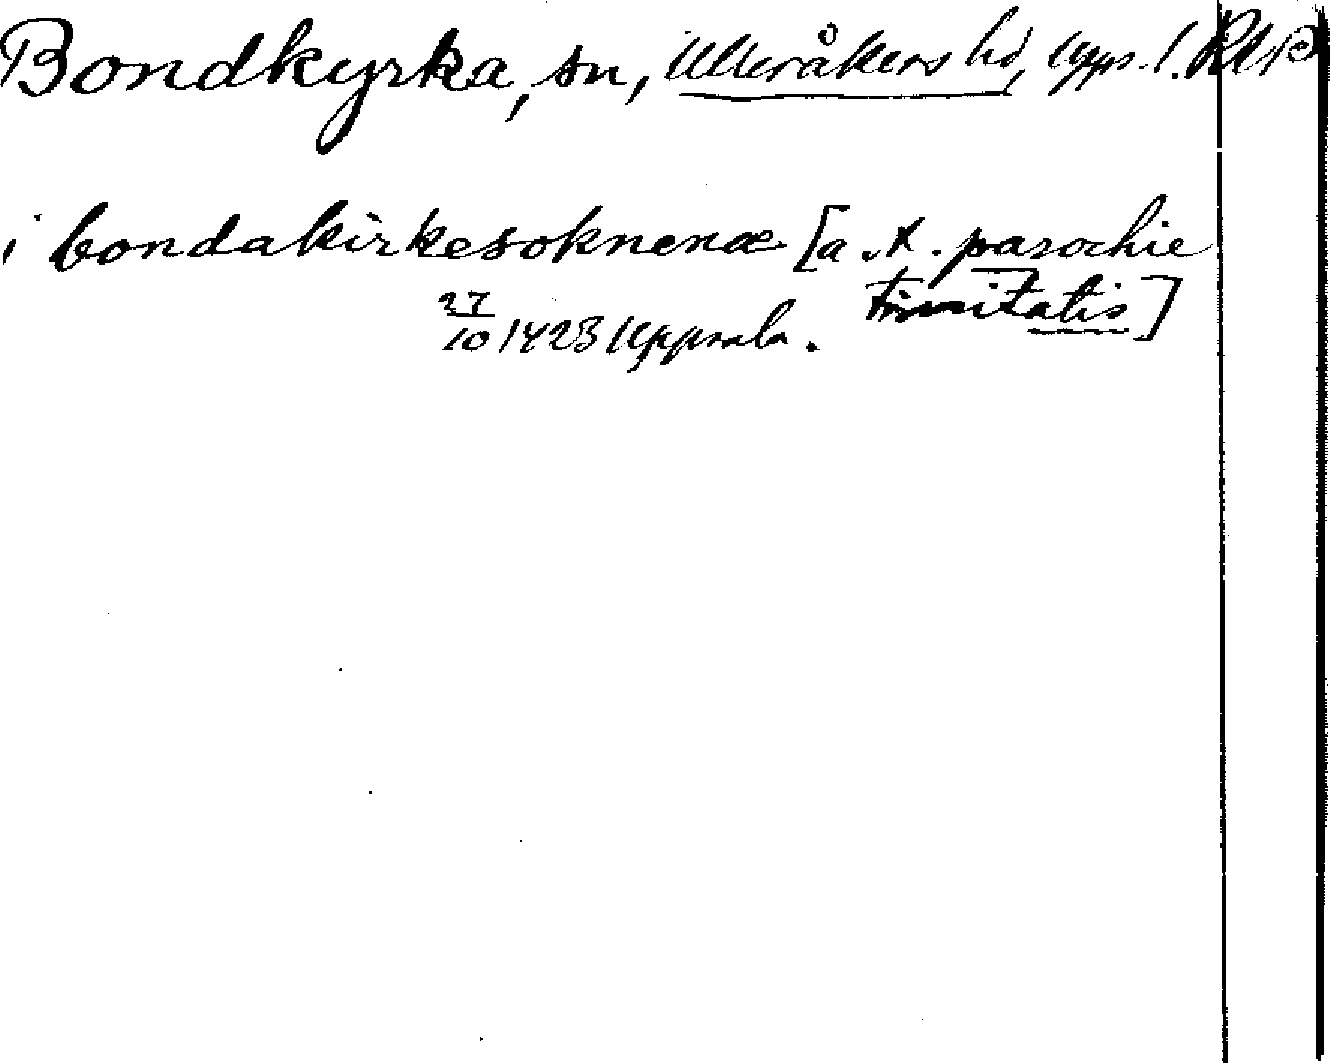 Bondkyrka, sn, Ulleråkers hd, Upps. l. RAP
i bondakirkesoknenæ [a.t. parochie
trinitatis]
27/10 1423 Uppsala.